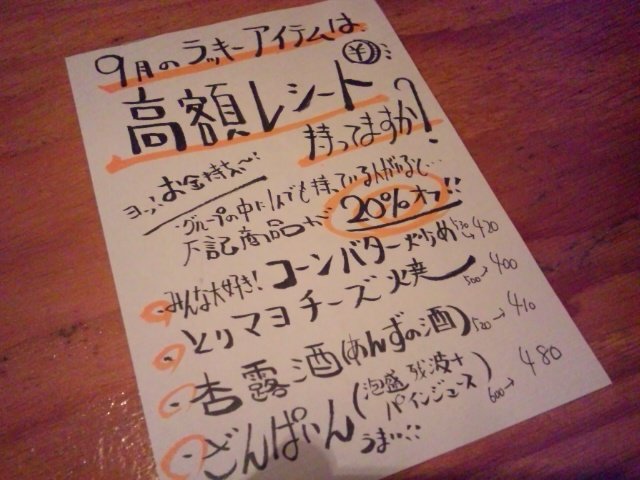 9月のラッキーアイテムは
高額レシート ¥
持ってますか?
ヨッ!お金持ち〜!!
グループの中に1人でも持っている人がいると…
下記商品が20%オフ!!
・みんな大好き!コーンバター炒め 520→420
・とりマヨチーズ焼 500→400
・杏露酒(あんずの酒) 520→410
・ざんぱいん(泡盛残波+パインジュース) 600→480
うまい!!